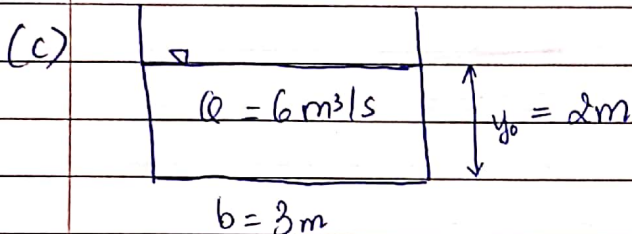 (c)
Q = 6 m³/s
y₀ = 2m
b = 3m